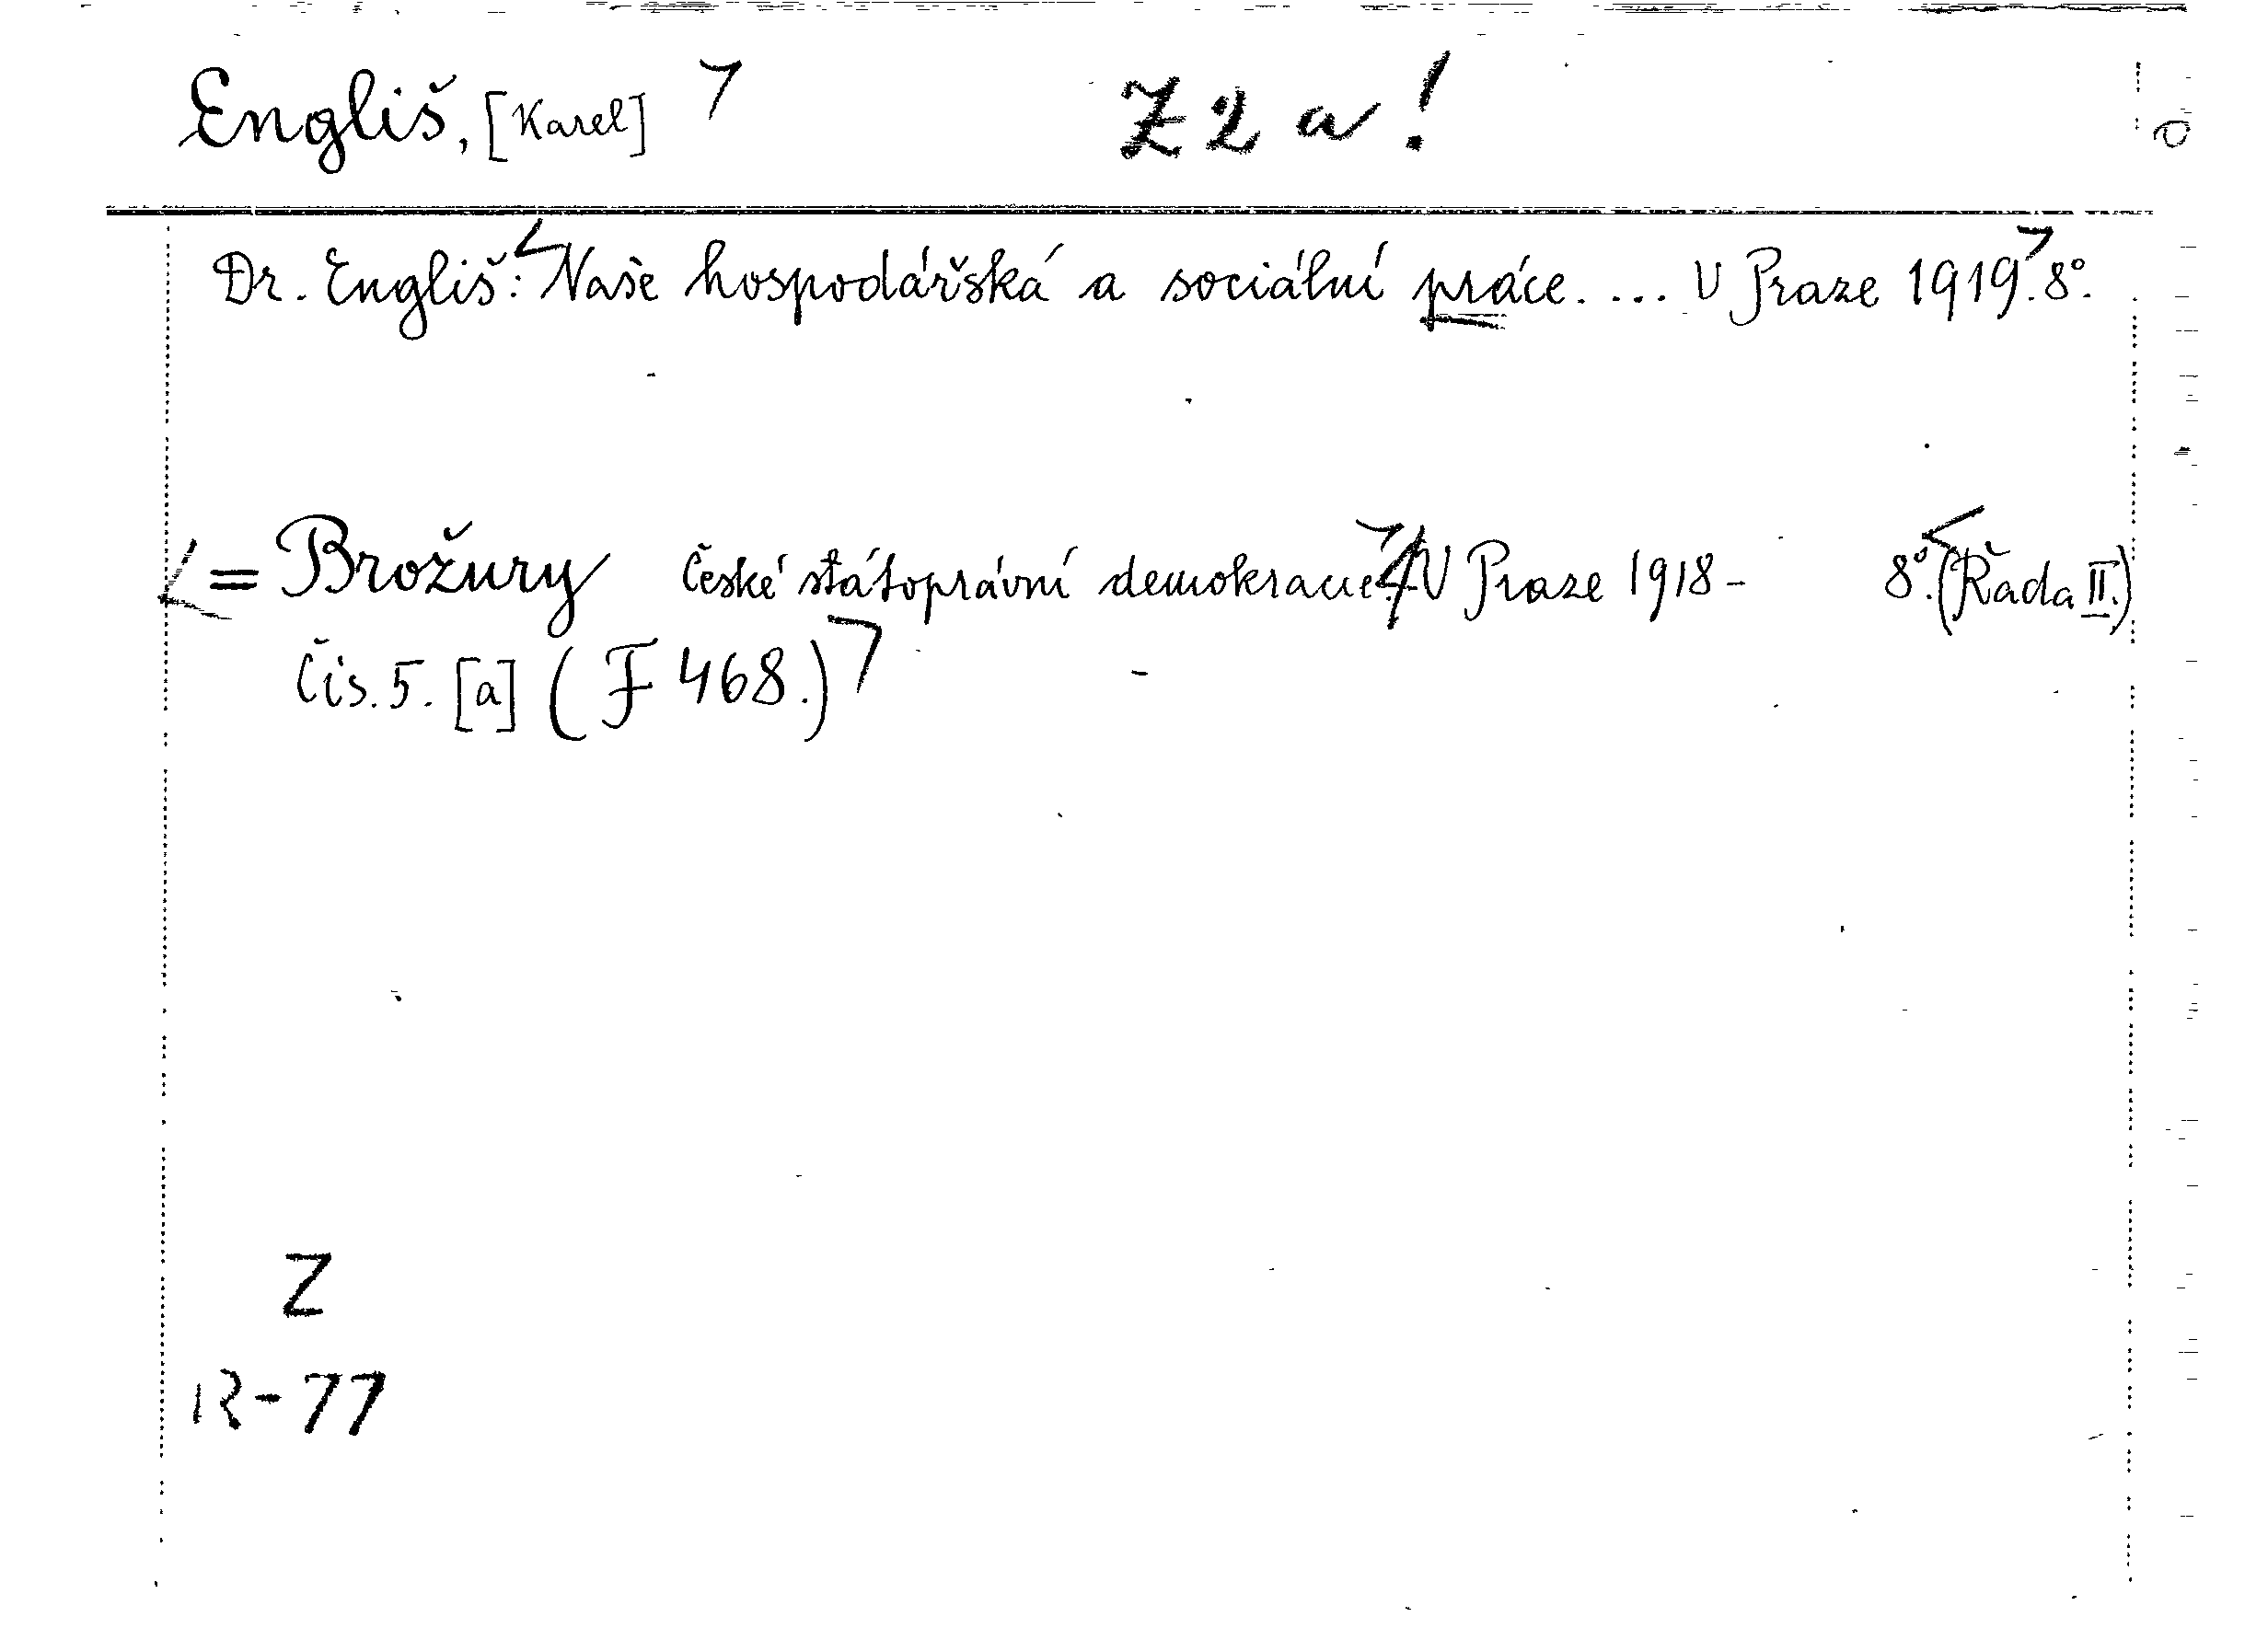 Engliš, [Karel] Z 2 a!
Dr. Engliš: Naše hospodářská a sociální práce. ... V Praze 1919. 8°.
= Brožury České státoprávní demokracie. V Praze 1918 - 8°. (Řada II.)
Čís. 5. [a] (F 468.)
Z
R-77